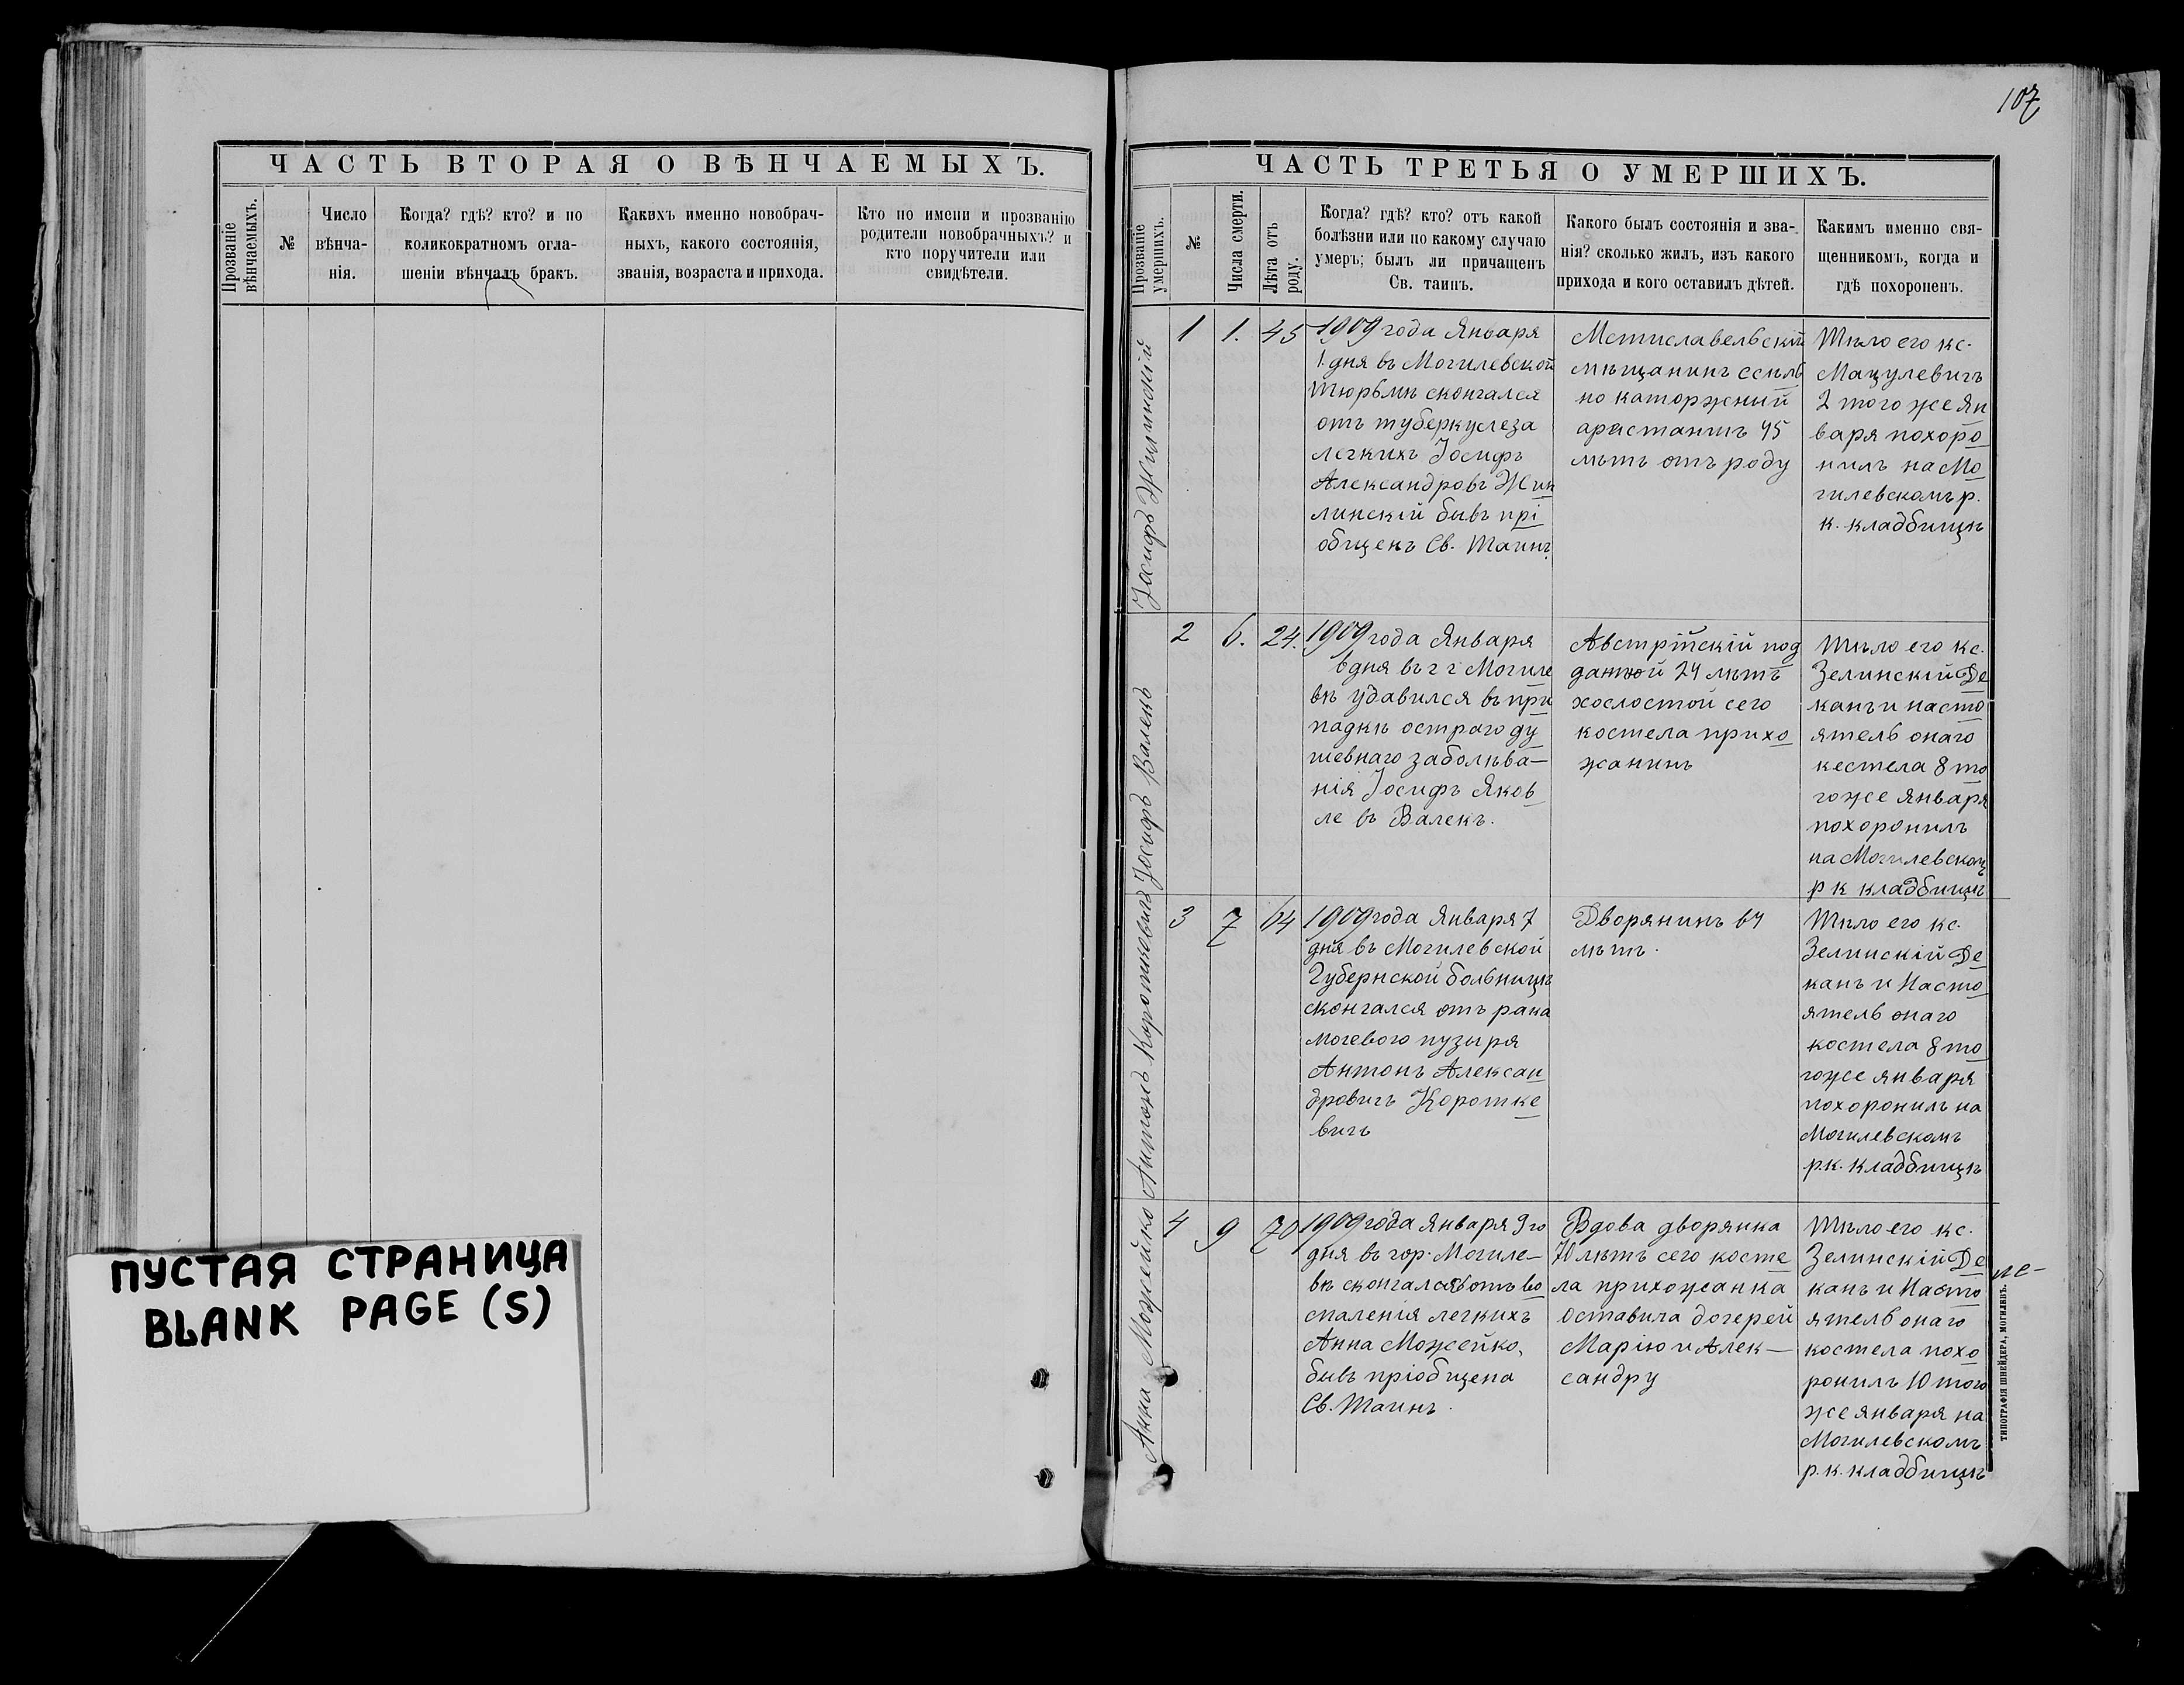 107
ЧАСТЬ ВТОРАЯ О ВѢНЧАЕМЫХЪ.
Прозваніе
вѣнчаемыхъ.
№
Число
вѣнча-
нія.
Когда? гдѣ? кто? и по
коликократномъ огла-
шеніи вѣнчалъ бракъ.
Какихъ именно новобрач-
ныхъ, какого состоянія,
званія, возраста и прихода.
Кто по имени и прозванію
родители новобрачныхъ? и
кто поручители или
свидѣтели.
ПУСТАЯ СТРАНИЦА
BLANK PAGE (S)
ЧАСТЬ ТРЕТЬЯ О УМЕРШИХЪ.
Прозваніе
умершихъ.
№
Числа смерти.
Лѣта отъ
роду.
Когда? гдѣ? кто? отъ какой
болѣзни или по какому случаю
умеръ; былъ ли причащенъ
Св. таинъ.
Какого былъ состоянія и зва-
нія? сколько жилъ, изъ какого
прихода и кого оставилъ дѣтей.
Какимъ именно свя-
щенникомъ, когда и
гдѣ похороненъ.
Іосифъ Жилинскій
1
1.
45
1909 года Января
1. дня въ Могилевской
тюрьмѣ скончался
отъ туберкулеза
легкихъ Іосифъ
Александровъ
линскій бывъ прі
общенъ Св. Таинъ.
Мстиславельскій
мѣщанинъ ссыль
но каторжный
арестантъ 45
лѣтъ отъ роду
Тѣло его кс.
Мацулевичъ
2 того же Ян
варя похоро
нилъ на Мо
гилевскомъ р.
к. кладбищѣ
Іосифъ Валекъ
2
6.
24.
1909 года Января
6 дня въ г. Могиле
вѣ удавился въ при
падкѣ остраго ду
шевнаго заболѣва-
нія Іосифъ Яков
левъ Валекъ.
Австрійскій под
данной 24 лѣтъ
холостой сего
костела прихо
жанинъ
Тѣло его кс.
Зелинскій Де
канъ и насто
ятель онаго
кестела 8 то
гоже Января
похоронилъ
на Могилевскомъ
р к кладбищѣ
Антонъ Короткевичъ
3
7
64
1909 года Января 7
дня въ Могилевской
Губернской больницѣ
скончался отъ рака
мочевого пузыря
Антонъ Алексан
дровичъ Коротке
вичъ
Дворянинъ 64
лѣтъ.
Тѣло его кс.
Зелинскій Де
канъ и Насто
ятель онаго
костела 8 то
гоже января
похоронилъ на
Могилевскомъ
р.к. кладбищѣ
Анна Можейко
4
9
70
1909 года Января 9 го
дня въ гор. Могиле-
вѣ скончалась отъ во
спаленія легкихъ
Анна Можейко,
бывъ пріобщена
Св. Таинъ.
Вдова дворянка
70 лѣтъ сего косте
ла прихожанка
оставила дочерей
Марію и Алек-
сандру
Тѣло его кс.
Зелинскій Де
канъ и Насто
ятель онаго
костела похо
ронилъ 10 того
же января на
Могилевскомъ
р.к. кладбищѣ
ТИПОГРАФІЯ ШНЕЙДЕРА, МОГИЛЕВЪ.